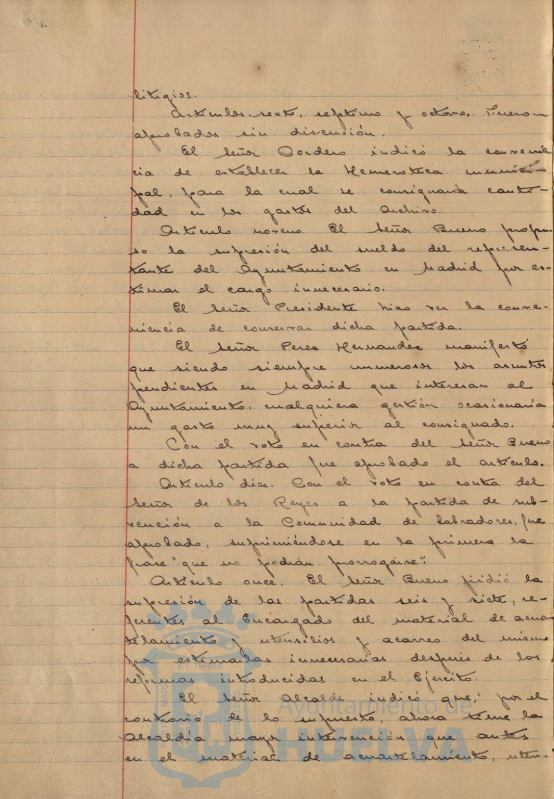 litigios.
Artículos sexto, septimo y octavo. Fueron
aprobados sin discusión.
El Señor Cordero indicó la convenien
cia de establecer la Hemeroteca munici-
pal, para la cual se consignaria canti-
dad en los gastos del Archivo.
Artículo noveno. El Señor Bueno propu
so la supresión del sueldo del represen-
tante del Ayuntamiento en Madrid por es-
timar el cargo innecesario.
El Señor Presidente hizo ver la conve-
niencia de conservar dicha partida.
El Señor Perez Hernandez manifestó
que siendo siempre numerosos los asuntos
pendientes en Madrid que interesan al
Ayuntamiento, cualquiera gestión ocasionaria
un gasto muy superior al consignado.
Con el voto en contra del Señor Bueno
a dicha partida fue aprobado el artículo.
Artículo diez. Con el voto en contra del
Señor de los Reyes a la partida de sub-
vención a la Comunidad de Labradores, fue
aprobado, suprimiéndose en la primera la
frase "que no podrán prorrogarse".
Artículo once. El Señor Bueno pidió la
supresión de las partidas seis y siete, re-
ferentes al Encargado del material de acuar
telamiento y utensilios y acarreo del mismo
por estimarlas innecesarias después de las
reformas introducidas en el Ejercito.
El Señor Alcalde indicó que, por el
contrario de lo supuesto, ahora tiene la
Alcaldía mayor intervención que antes
en el material de acuartelamiento, uten-
Ayuntamiento de
HUELVA